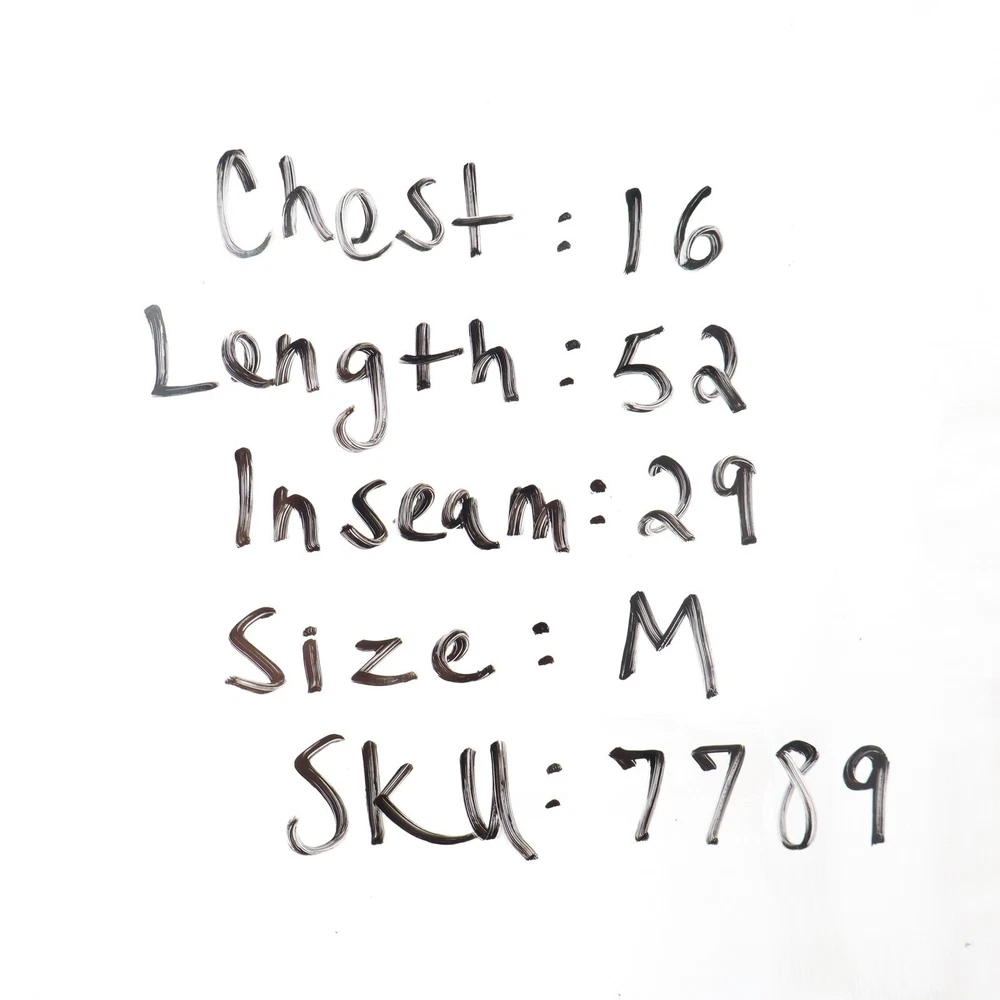 Chest : 16
Length : 52
Inseam : 29
Size : M
SKU : 7789